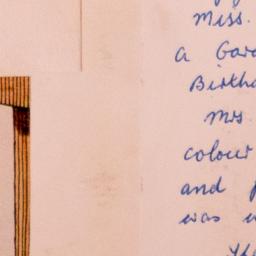 Miss.
a Gard
Birthd
Mrs
colour
and
was